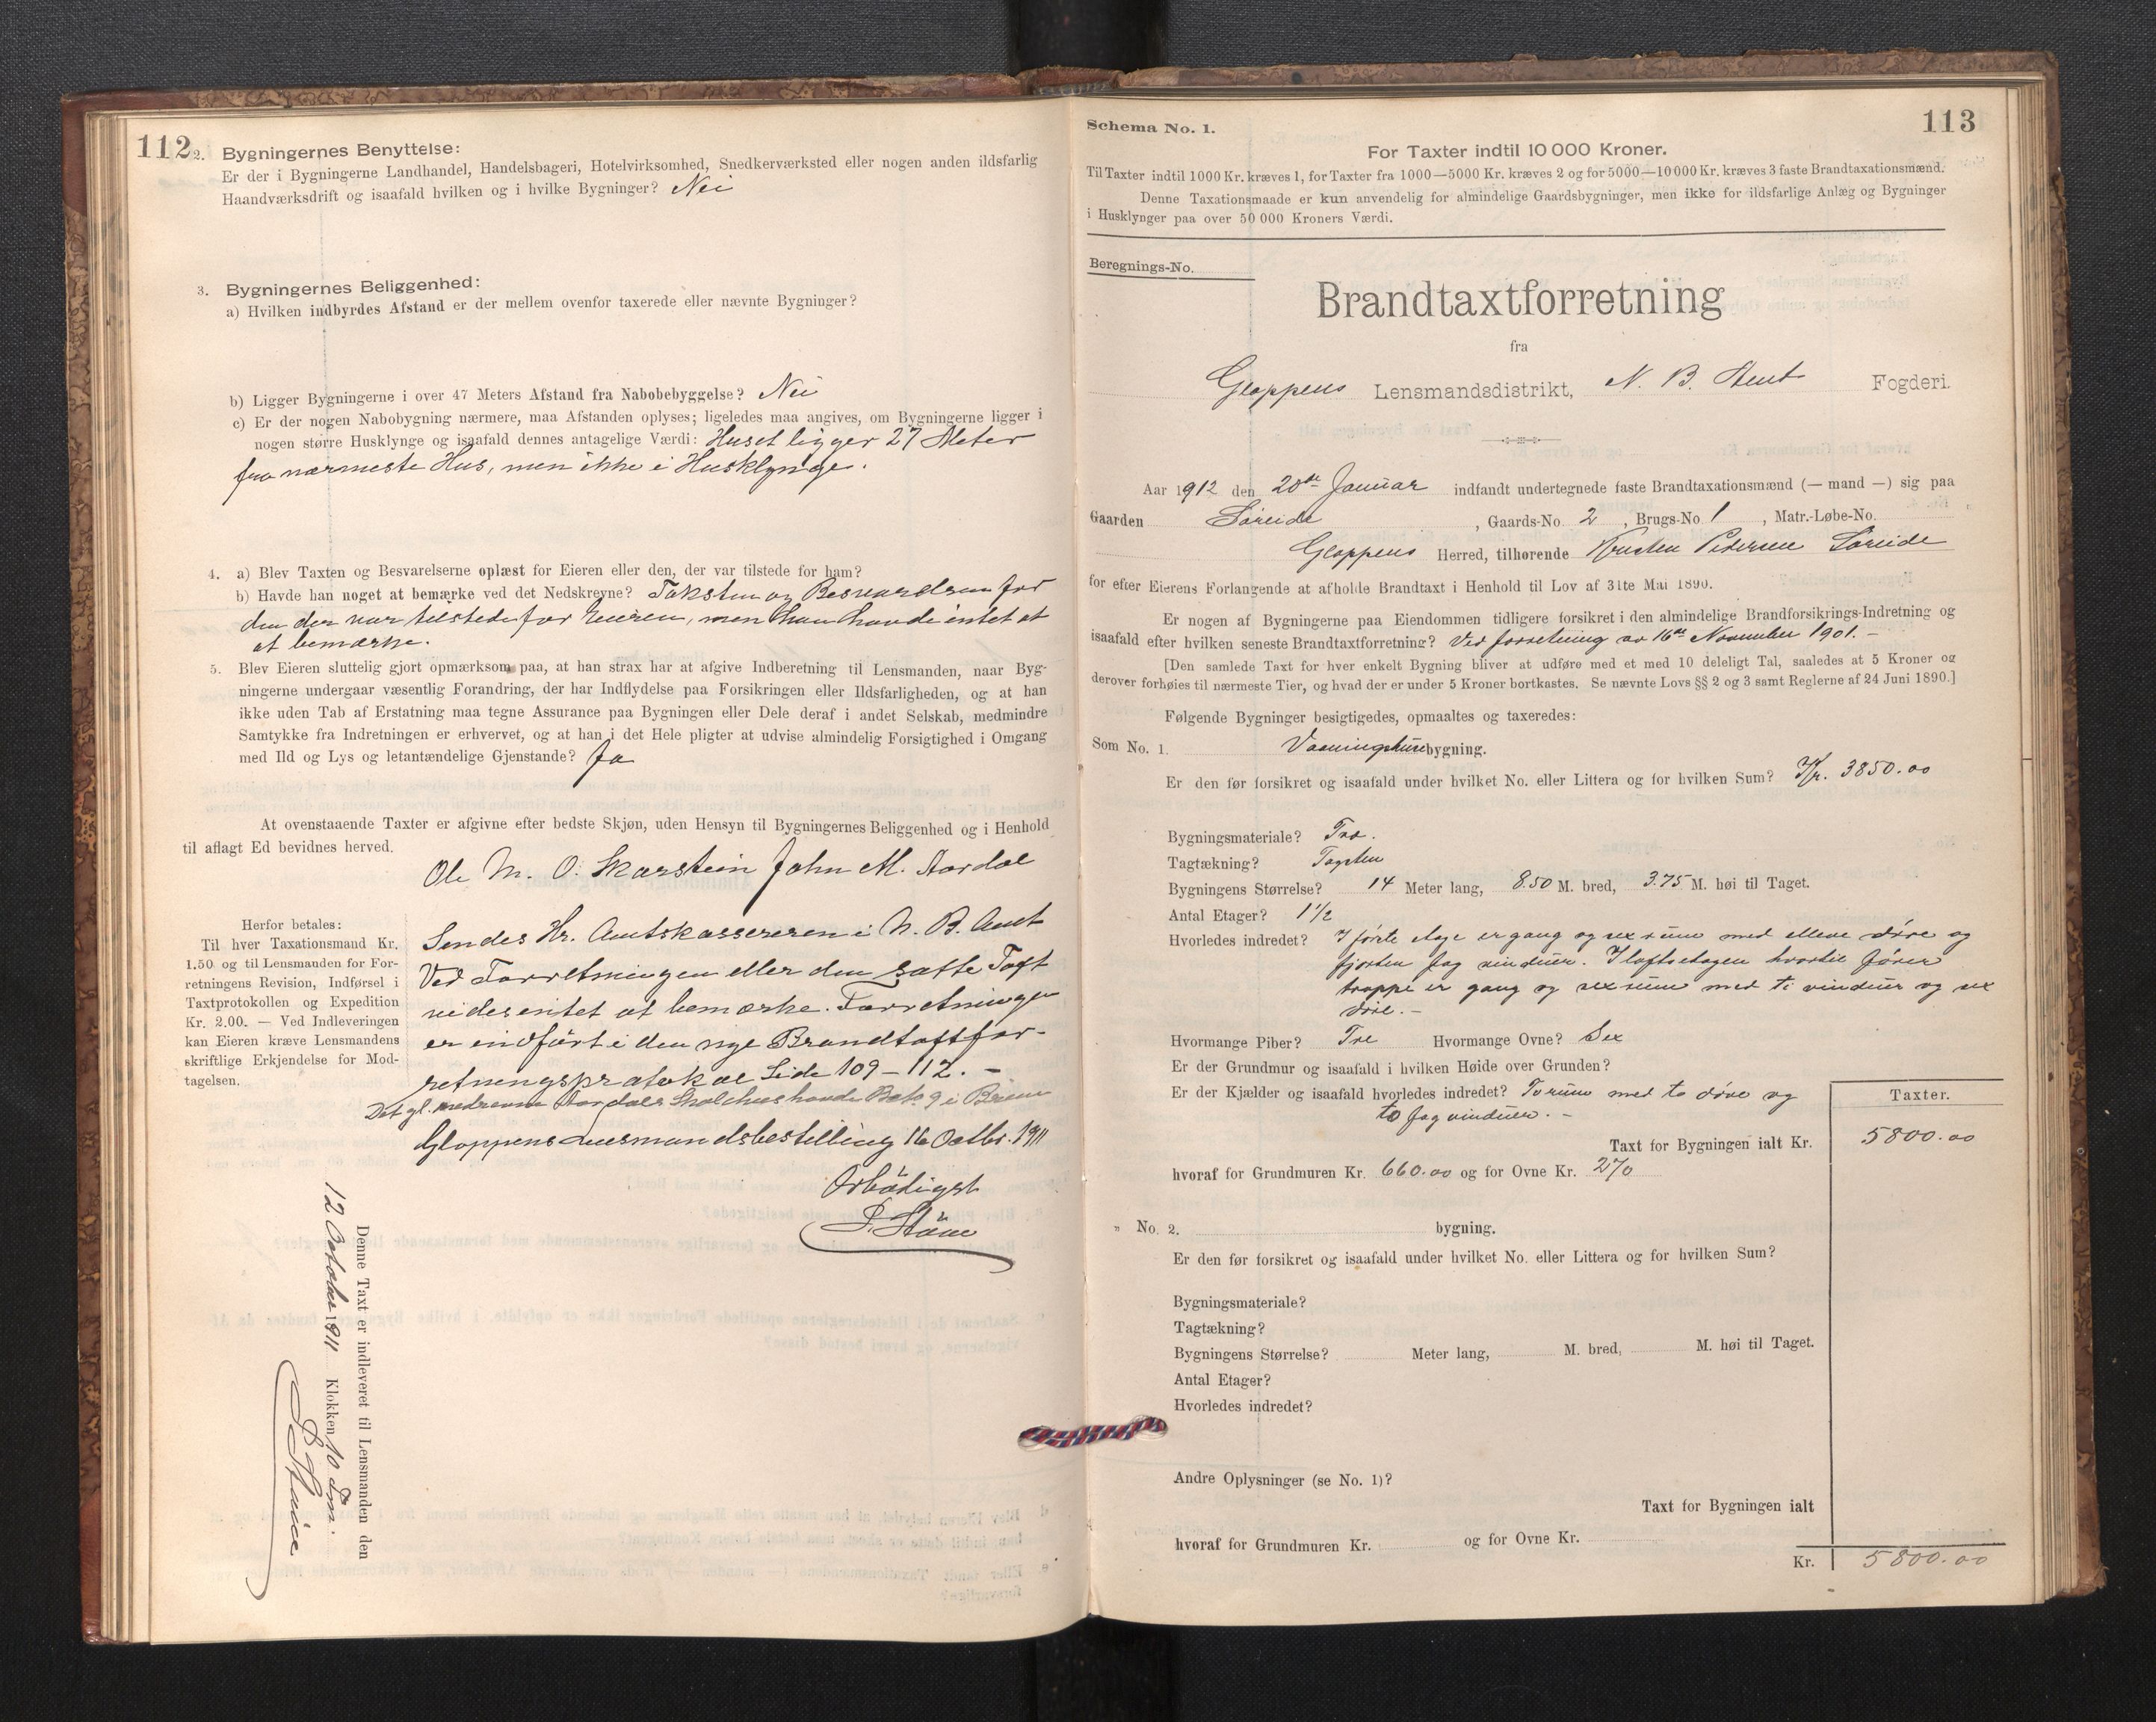 112
2. Bygningernes Benyttelse:
Er der i Bygningerne Landhandel, Handelsbageri, Hotelvirksomhed, Snedkerværksted eller nogen anden ildsfarlig
Haandværksdrift og isaafald hvilken og i hvilke Bygninger? Nei
3. Bygningernes Beliggenhed:
a) Hvilken indbyrdes Afstand er der mellem ovenfor taxerede eller nævnte Bygninger?
b) Ligger Bygningerne i over 47 Meters Afstand fra Nabobebyggelse? Nei
c) Er der nogen Nabobygning nærmere, maa Afstanden oplyses; ligeledes maa angives, om Bygningerne ligger i
nogen større Husklynge og isaafald dennes antagelige Værdi: Huset ligger 27 Meter
fra nærmeste Hus, men ikke i Husklynge.
4. a) Blev Taxten og Besvarelserne oplæst for Eieren eller den, der var tilstede for ham?
b) Havde han noget at bemærke ved det Nedskrevne? Taksten og Besvarelsen for
den der var tilstede for Eieren, men han havde intet at
at bemærke.
5. Blev Eieren sluttelig gjort opmærksom paa, at han strax har at afgive Indberetning til Lensmanden, naar Byg-
ningerne undergaar væsentlig Forandring, der har Indflydelse paa Forsikringen eller Ildsfarligheden, og at han
ikke uden Tab af Erstatning maa tegne Assurance paa Bygningen eller Dele deraf i andet Selskab, medmindre
Samtykke fra Indretningen er erhvervet, og at han i det Hele pligter at udvise almindelig Forsigtighed i Omgang
med Ild og Lys og letantændelige Gjenstande? Ja
At ovenstaaende Taxter er afgivne efter bedste Skjøn, uden Hensyn til Bygningernes Beliggenhed og i Henhold
til aflagt Ed bevidnes herved.
Ole M. O. Skarstein John M. Aardal
Herfor betales:
Til hver Taxationsmand Kr.
1.50 og til Lensmanden for For-
retningens Revision, Indførsel i
Taxtprotokollen og Expedition
Kr. 2.00. — Ved Indleveringen
kan Eieren kræve Lensmandens
skriftlige Erkjendelse for Mod-
tagelsen.
Sendes Hr. Amtskassereren i N. B. Amt
Ved Forretningen eller den satte Taxt
vides intet at bemærke. Forretningen
er indført i den nye Brandtaxtfor-
retningsprotokol Side 109 - 112. -
Det gl. Aardals Skolehus havde
Gloppens Lensmandsbestilling 16 Octbr. 1911
Ærbødigst
Denne Taxt er indleveret til Lensmanden den
12 October 1911 Klokken 10 Fm.
113
Schema No. 1.
For Taxter indtil 10 000 Kroner.
Til Taxter indtil 1000 Kr. kræves 1, for Taxter fra 1000—5000 Kr. kræves 2 og for 5000—10 000 Kr. kræves 3 faste Brandtaxationsmænd.
Denne Taxationsmaade er kun anvendelig for almindelige Gaardsbygninger, men ikke for ildsfarlige Anlæg og Bygninger
i Husklynger paa over 50 000 Kroners Værdi.
Beregnings-No.
Brandtaxtforretning
fra
Gloppens Lensmandsdistrikt, N. B. Amt Fogderi.
Aar 1912 den 20de Januar indfandt undertegnede faste Brandtaxationsmænd (— mand —) sig paa
Gaarden Søreide, Gaards-No. 2, Brugs-No. 1, Matr.-Løbe-No.
Gloppens Herred, tilhørende Kristen Pedersen Søreide
for efter Eierens Forlangende at afholde Brandtaxt i Henhold til Lov af 31te Mai 1890.
Er nogen af Bygningerne paa Eiendommen tidligere forsikret i den almindelige Brandforsikrings-Indretning og
isaafald efter hvilken seneste Brandtaxtforretning? Ved forretning av 16de November 1901. -
[Den samlede Taxt for hver enkelt Bygning bliver at udføre med et med 10 deleligt Tal, saaledes at 5 Kroner og
derover forhøies til nærmeste Tier, og hvad der er under 5 Kroner bortkastes. Se nævnte Lovs §§ 2 og 3 samt Reglerne af 24 Juni 1890.]
Følgende Bygninger besigtigedes, opmaaltes og taxeredes:
Som No. 1. Vaaningshusbygning.
Er den før forsikret og isaafald under hvilket No. eller Littera og for hvilken Sum? Kr. 3850.00
Bygningsmateriale? Træ.
Tagtækning? Tagsten
Bygningens Størrelse? 14 Meter lang, 8.50 M. bred, 3.75 M. høi til Taget.
Antal Etager? 1½
Hvorledes indredet? I første etage er gang og sex rum med elleve døre og
fjorten fag vinduer. I loftsetagen hvortil fører
trappe er gang og sex rum med ti vinduer og sex
døre. -
Hvormange Piber? Tre Hvormange Ovne? Sex
Er der Grundmur og isaafald i hvilken Høide over Grunden?
Er der Kjælder og isaafald hvorledes indredet? To rum med to døre og
to fag vinduer. -
Taxter.
Taxt for Bygningen ialt Kr. 5800.00
hvoraf for Grundmuren Kr. 660.00 og for Ovne Kr. 270
" No. 2. bygning.
Er den før forsikret og isaafald under hvilket No. eller Littera og for hvilken Sum?
Bygningsmateriale?
Tagtækning?
Bygningens Størrelse? Meter lang, M. bred, M. høi til Taget.
Antal Etager?
Hvorledes indredet?
Andre Oplysninger (se No. 1)?
Taxt for Bygningen ialt
hvoraf for Grundmuren Kr. og for Ovne Kr.
Kr. 5800.00